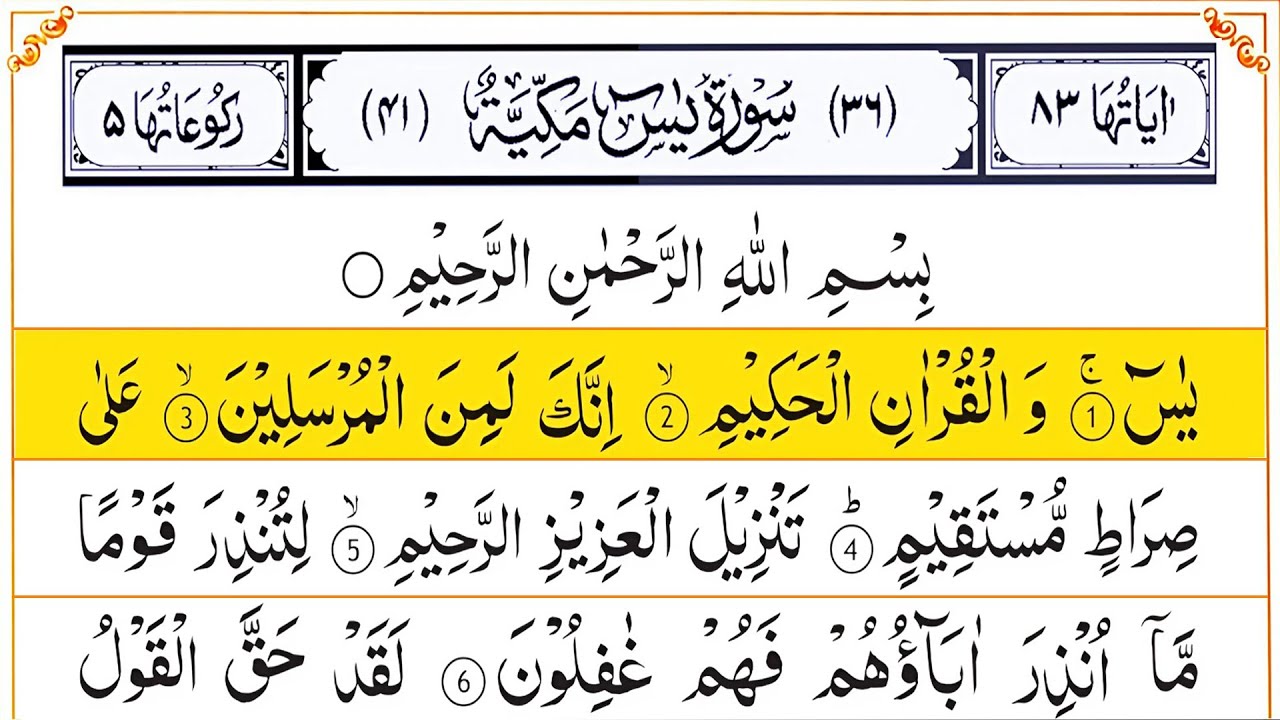 اٰیَاتُهَا ۸۳ (۳۶) سُوْرَةُ یٰسٓ مَكِّیَّةٌ (۴۱) رُكُوْعَاتُهَا ۵
بِسْمِ اللّٰهِ الرَّحْمٰنِ الرَّحِیْمِ ○
یٰسٓ ۚ ① وَ الْقُرْاٰنِ الْحَكِیْمِ ۙ ② اِنَّكَ لَمِنَ الْمُرْسَلِیْنَ ۙ ③ عَلٰی
صِرَاطٍ مُّسْتَقِیْمٍ ؕ ④ تَنْزِیْلَ الْعَزِیْزِ الرَّحِیْمِ ۙ ⑤ لِتُنْذِرَ قَوْمًا
مَّاۤ اُنْذِرَ اٰبَآؤُهُمْ فَهُمْ غٰفِلُوْنَ ⑥ لَقَدْ حَقَّ الْقَوْلُ